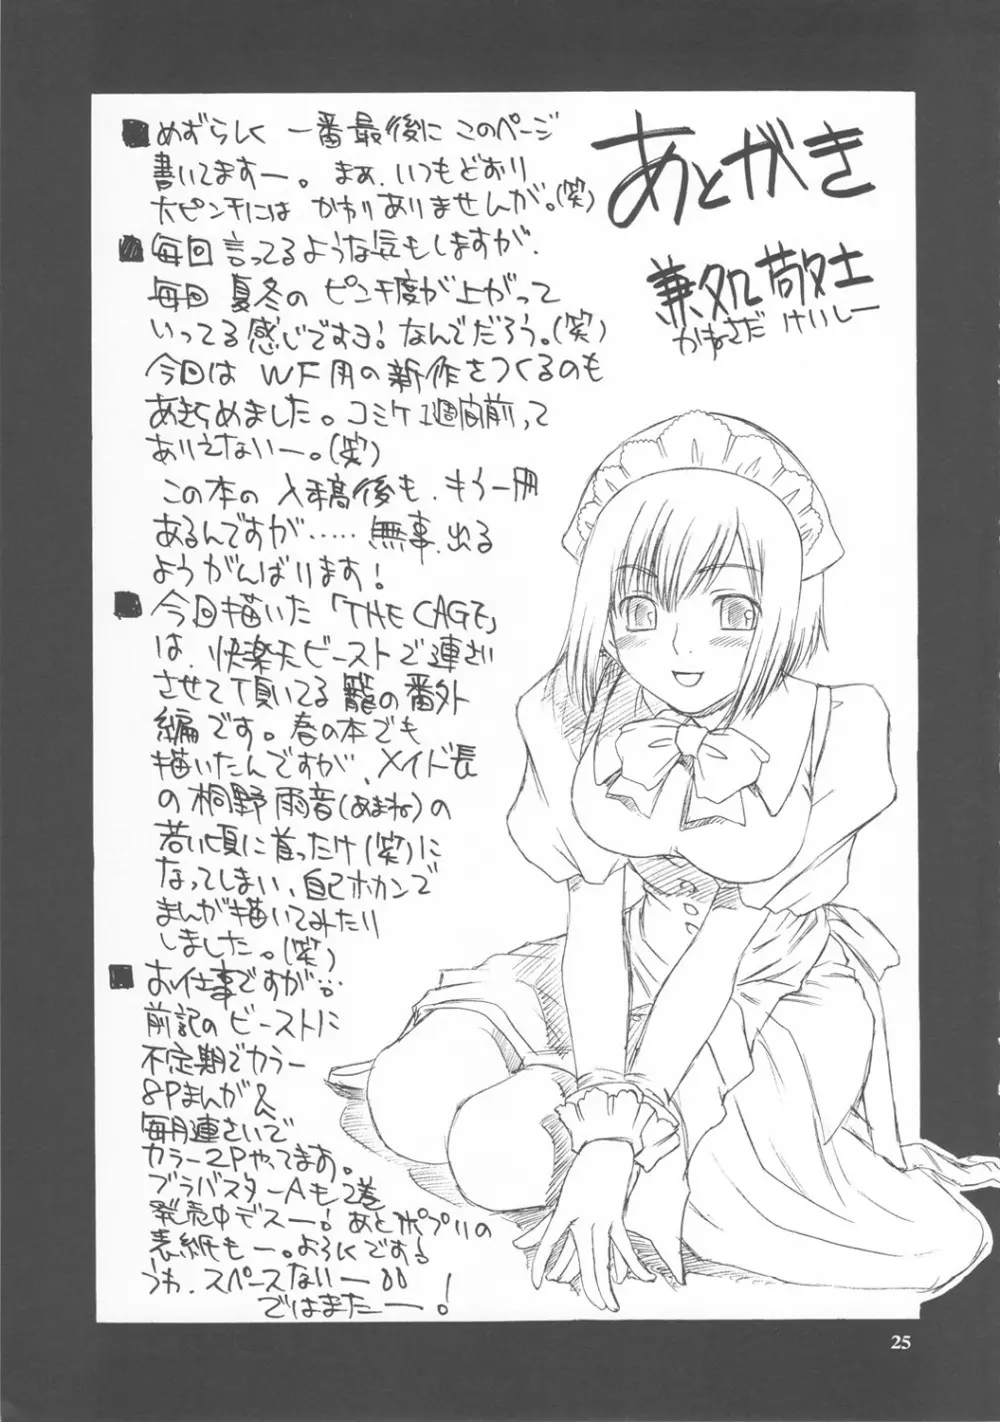 あとがき
兼処敬士
かねさだ けいしー
■めずらしく 一番最後に このページ
書いてますー。まぁ、いつもどおり
大ピンチには かわりありませんが。(笑)
■毎回 言ってるような気もしますが、
毎回 夏冬の ピンチ度が上がって
いってる感じですよ! なんでだろう。(笑)
今回は WF用の新作をつくるのも
あきらめました。コミケ1週間前って
ありえないー。(笑)
この本の 入稿後も、もう一冊
あるんですが……無事、出る
ようがんばります!
■今回描いた「THE CAGE」
は、快楽天ビーストで連さい
させて頂いてる 籠の番外
編です。春の本でも
描いたんですが、メイド長
の 桐野 雨音(あまね)の
若い頃に首ったけ(笑)に
なってしまい、自己ホカンで
まんが描いてみたり
しました。(笑)
■お仕事ですが…
前記の ビーストに
不定期でカラー
8Pまんが&
毎月連さいで
カラー2Pやってます。
ブラバスターAも 2巻
発売中デスー! あと ポプリの
表紙もー。よろしくです!
うわ、スペースないー
ではまたー!
25